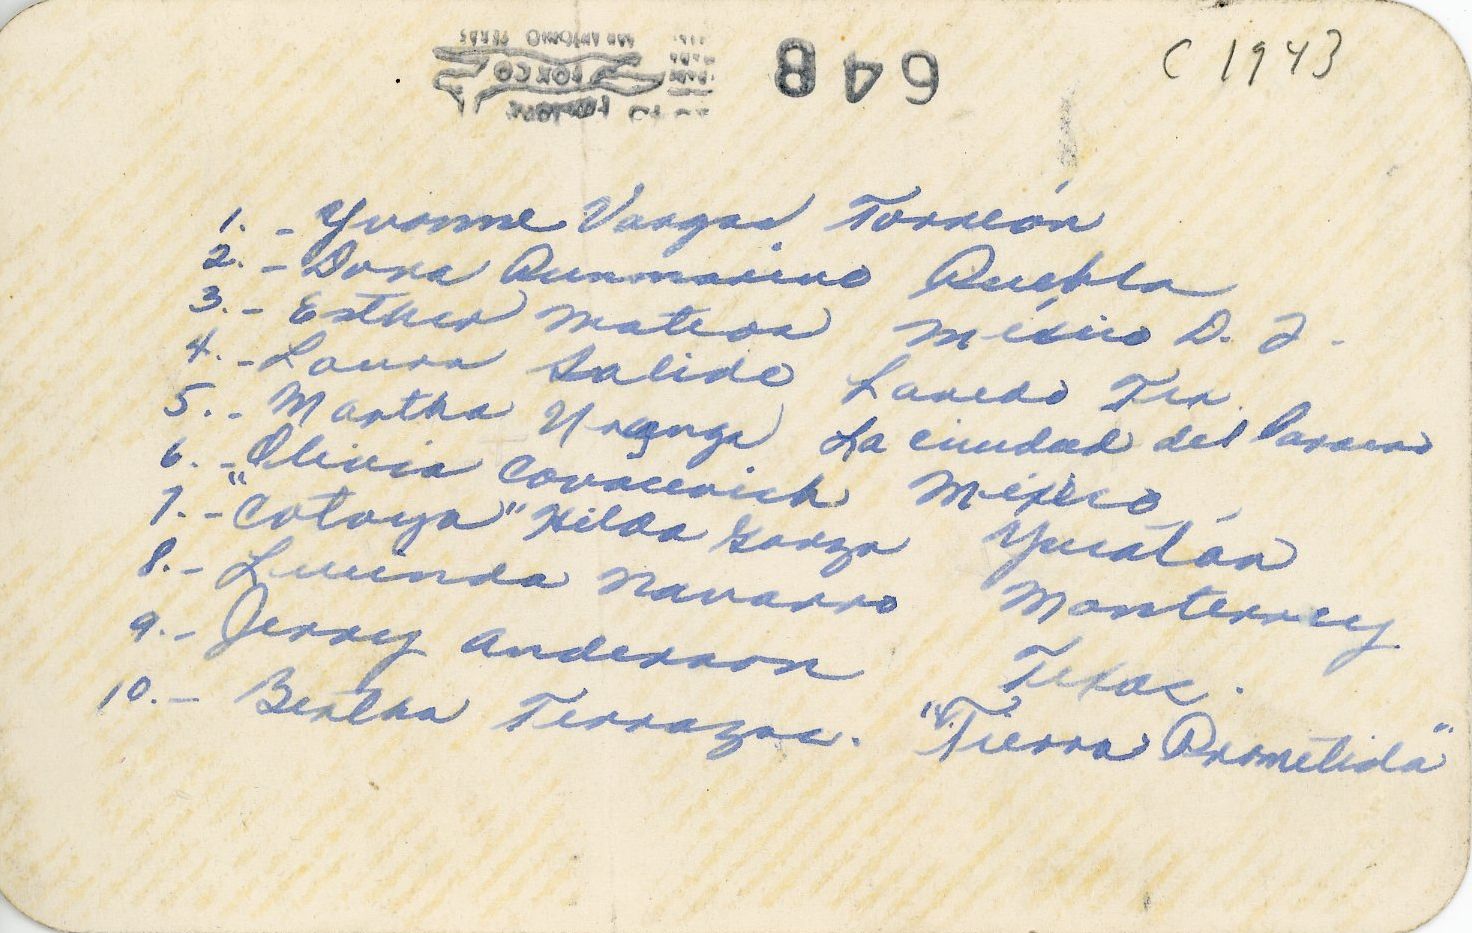 C 1943
648
FOXCO
SAN ANTONIO TEXAS
1.- Yvonne Vargas Torreón
2.- Dora Puebla
3.- Esther Mateos México D. F.
4.- Laura Salido Laredo Tex.
5.- Martha Uranga La ciudad del
6.- Olivia Covacevich México
7.- "Cotoya" Hilda Garza Yucatán
8.- Lucinda Navarro Monterrey
9.- Jerry Anderson Texas.
10.- Bertha Terrazas. "Tierra Prometida"